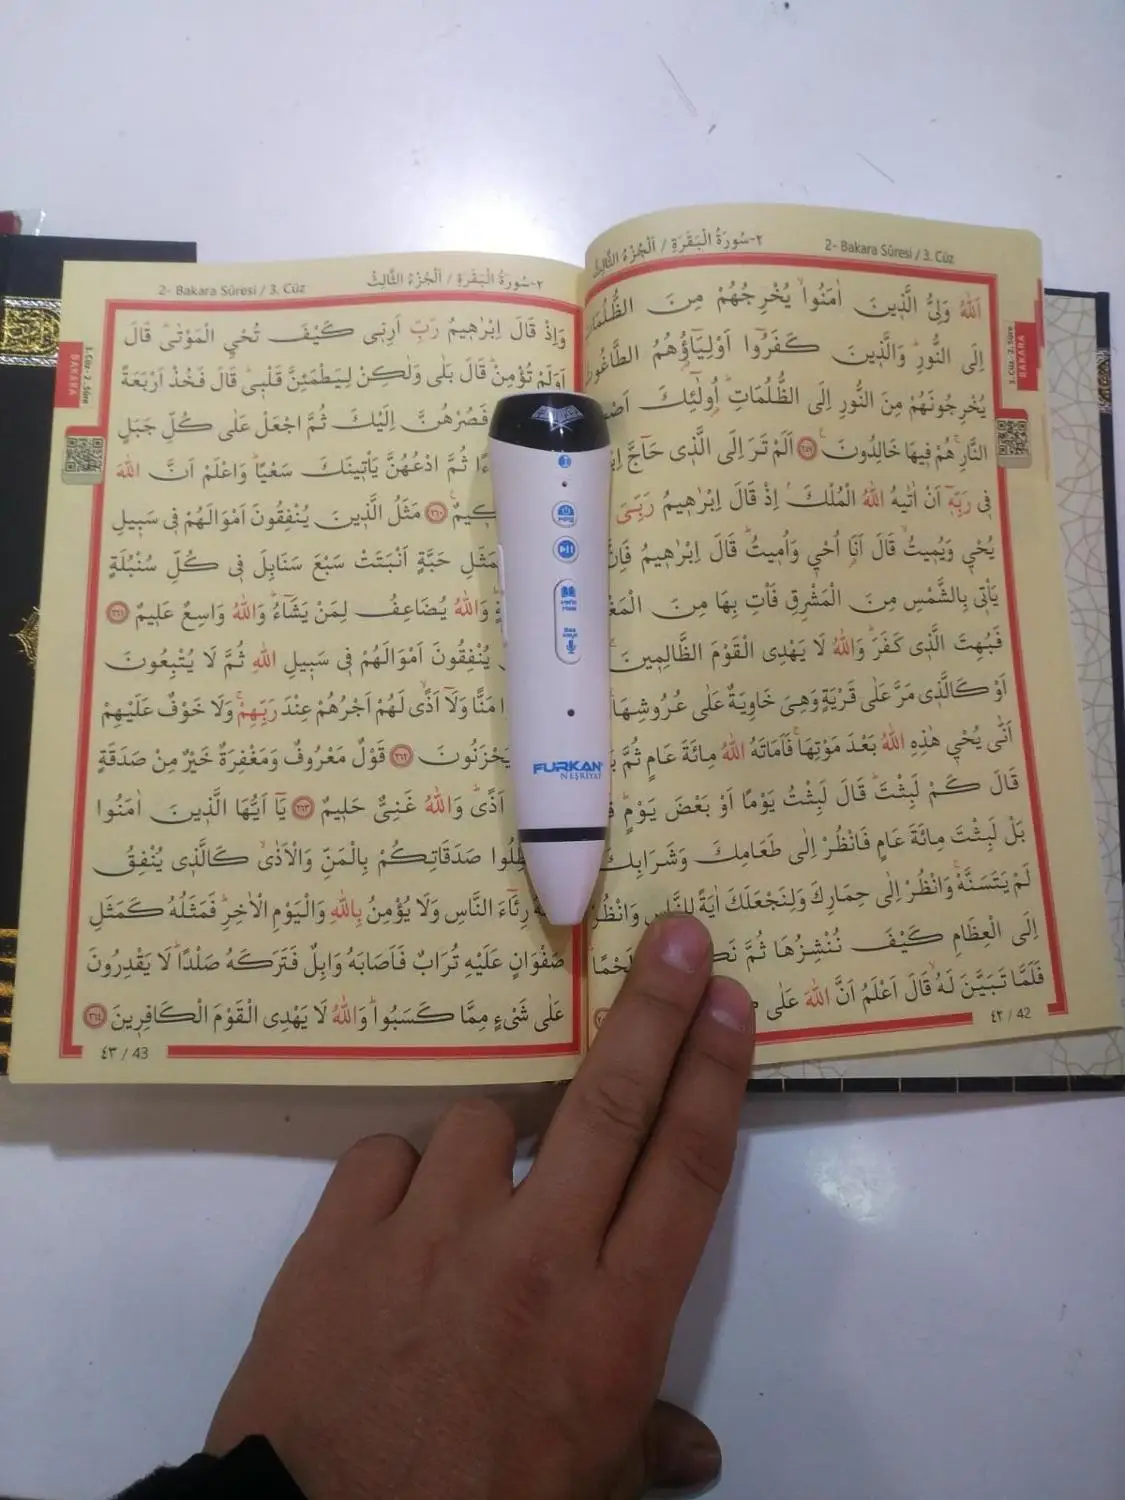 ٢-سُورَةُ الْبَقَرَةِ / اَلْجُزْءُ الثَّالِثُ
2- Bakara Sûresi / 3. Cüz
اَللّٰهُ وَلِيُّ الَّذ۪ينَ اٰمَنُواۙ يُخْرِجُهُمْ مِنَ
اِلَى النُّورِۜ وَالَّذ۪ينَ كَفَرُٓوا اَوْلِيَٓاؤُ۬هُمُ
يُخْرِجُونَهُمْ مِنَ النُّورِ اِلَى الظُّلُمَاتِۜ اُو۬لٰٓئِكَ
النَّارِۚ هُمْ ف۪يهَا خَالِدُونَ۟ ﴿٢٥٧﴾ اَلَمْ تَرَ اِلَى الَّذ۪ي حَٓاجَّ
ف۪ي رَبِّه۪ٓ اَنْ اٰتٰيهُ اللّٰهُ الْمُلْكَۢ اِذْ قَالَ اِبْرٰه۪يمُ رَبِّيَ
يُحْي۪ وَيُم۪يتُۙ قَالَ اَنَا۬ اُحْي۪ وَاُم۪يتُۜ قَالَ اِبْرٰه۪يمُ
يَأْت۪ي بِالشَّمْسِ مِنَ الْمَشْرِقِ فَأْتِ بِهَا مِنَ
فَبُهِتَ الَّذ۪ي كَفَرَۜ وَاللّٰهُ لَا يَهْدِي الْقَوْمَ الظَّالِم۪ينَۚ
اَوْ كَالَّذ۪ي مَرَّ عَلٰى قَرْيَةٍ وَهِيَ خَاوِيَةٌ عَلٰى عُرُوشِهَاۚ
اَنّٰى يُحْي۪ هٰذِهِ اللّٰهُ بَعْدَ مَوْتِهَاۚ فَاَمَاتَهُ اللّٰهُ مِائَةَ عَامٍ ثُمَّ
قَالَ كَمْ لَبِثْتَۜ قَالَ لَبِثْتُ يَوْمًا اَوْ بَعْضَ يَوْمٍۜ
بَلْ لَبِثْتَ مِائَةَ عَامٍ فَانْظُرْ اِلٰى طَعَامِكَ وَشَرَابِكَ
لَمْ يَتَسَنَّهْۚ وَانْظُرْ اِلٰى حِمَارِكَ وَلِنَجْعَلَكَ اٰيَةً لِلنَّاسِ وَانْظُرْ
اِلَى الْعِظَامِ كَيْفَ نُنْشِزُهَا ثُمَّ لَحْمًا
فَلَمَّا تَبَيَّنَ لَهُۙ قَالَ اَعْلَمُ اَنَّ اللّٰهَ عَلٰى
٤٢ / 42
3. Cüz-2. Sûre
BAKARA
٢-سُورَةُ الْبَقَرَةِ / اَلْجُزْءُ الثَّالِثُ
2- Bakara Sûresi / 3. Cüz
وَاِذْ قَالَ اِبْرٰه۪يمُ رَبِّ اَرِن۪ي كَيْفَ تُحْيِ الْمَوْتٰىۜ قَالَ
اَوَلَمْ تُؤْمِنْۜ قَالَ بَلٰى وَلٰكِنْ لِيَطْمَئِنَّ قَلْب۪يۜ قَالَ فَخُذْ اَرْبَعَةً
فَصُرْهُنَّ اِلَيْكَ ثُمَّ اجْعَلْ عَلٰى كُلِّ جَبَلٍ
ثُمَّ ادْعُهُنَّ يَأْت۪ينَكَ سَعْيًاۜ وَاعْلَمْ اَنَّ اللّٰهَ
﴿٢٦٠﴾ مَثَلُ الَّذ۪ينَ يُنْفِقُونَ اَمْوَالَهُمْ ف۪ي سَب۪يلِ
حَبَّةٍ اَنْبَتَتْ سَبْعَ سَنَابِلَ ف۪ي كُلِّ سُنْبُلَةٍ
وَاللّٰهُ يُضَاعِفُ لِمَنْ يَشَٓاءُۜ وَاللّٰهُ وَاسِعٌ عَل۪يمٌ ﴿٢٦١﴾
يُنْفِقُونَ اَمْوَالَهُمْ ف۪ي سَب۪يلِ اللّٰهِ ثُمَّ لَا يُتْبِعُونَ
مَنًّا وَلَٓا اَذًىۙ لَهُمْ اَجْرُهُمْ عِنْدَ رَبِّهِمْۚ وَلَا خَوْفٌ عَلَيْهِمْ
يَحْزَنُونَ ﴿٢٦٢﴾ قَوْلٌ مَعْرُوفٌ وَمَغْفِرَةٌ خَيْرٌ مِنْ صَدَقَةٍ
اَذًىۜ وَاللّٰهُ غَنِيٌّ حَل۪يمٌ ﴿٢٦٣﴾ يَٓا اَيُّهَا الَّذ۪ينَ اٰمَنُوا
صَدَقَاتِكُمْ بِالْمَنِّ وَالْاَذٰىۙ كَالَّذ۪ي يُنْفِقُ
رِئَٓاءَ النَّاسِ وَلَا يُؤْمِنُ بِاللّٰهِ وَالْيَوْمِ الْاٰخِرِۜ فَمَثَلُهُ كَمَثَلِ
صَفْوَانٍ عَلَيْهِ تُرَابٌ فَاَصَابَهُ وَابِلٌ فَتَرَكَهُ صَلْدًاۜ لَا يَقْدِرُونَ
عَلٰى شَيْءٍ مِمَّا كَسَبُواۜ وَاللّٰهُ لَا يَهْدِي الْقَوْمَ الْكَافِر۪ينَ ﴿٢٦٤﴾
٤٣ / 43
3. Cüz-2. Sûre
BAKARA
FURKAN
NEŞRİYAT